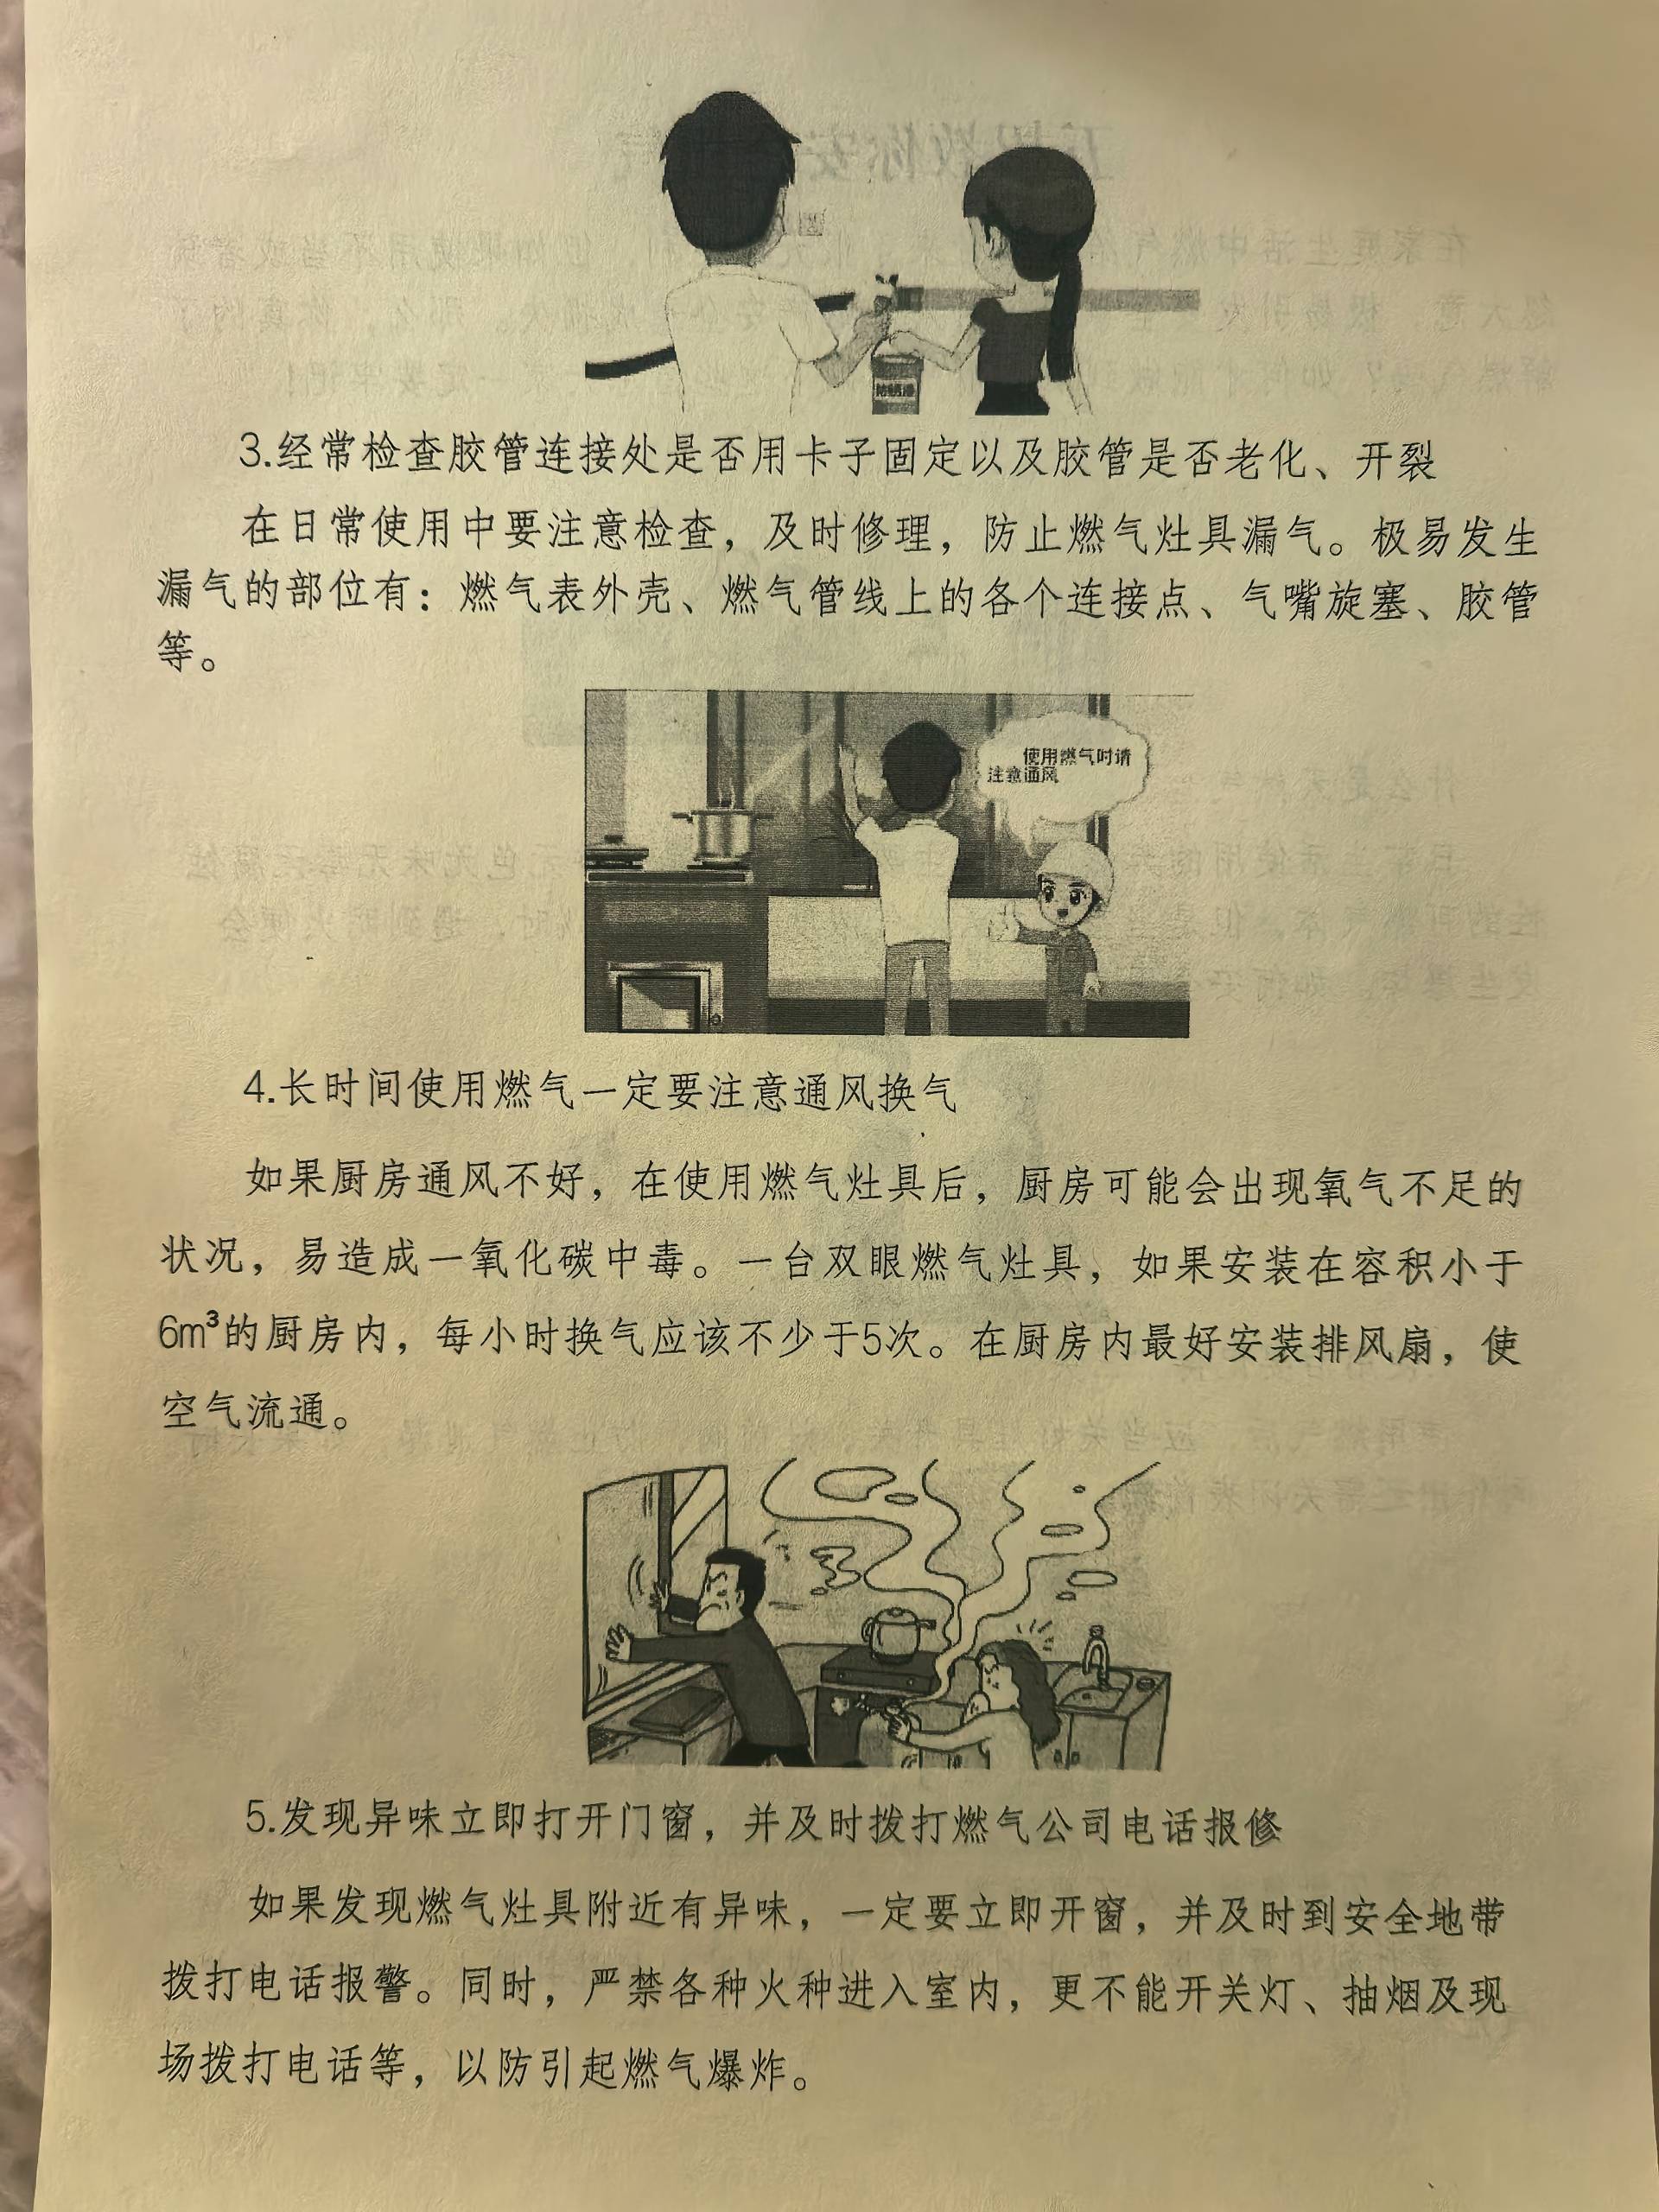 3.经常检查胶管连接处是否用卡子固定以及胶管是否老化、开裂
在日常使用中要注意检查，及时修理，防止燃气灶具漏气。极易发生
漏气的部位有：燃气表外壳、燃气管线上的各个连接点、气嘴旋塞、胶管
等。
使用燃气时请
注意通风
4.长时间使用燃气一定要注意通风换气
如果厨房通风不好，在使用燃气灶具后，厨房可能会出现氧气不足的
状况，易造成一氧化碳中毒。一台双眼燃气灶具，如果安装在容积小于
6m³的厨房内，每小时换气应该不少于5次。在厨房内最好安装排风扇，使
空气流通。
5.发现异味立即打开门窗，并及时拨打燃气公司电话报修
如果发现燃气灶具附近有异味，一定要立即开窗，并及时到安全地带
拨打电话报警。同时，严禁各种火种进入室内，更不能开关灯、抽烟及现
场拨打电话等，以防引起燃气爆炸。